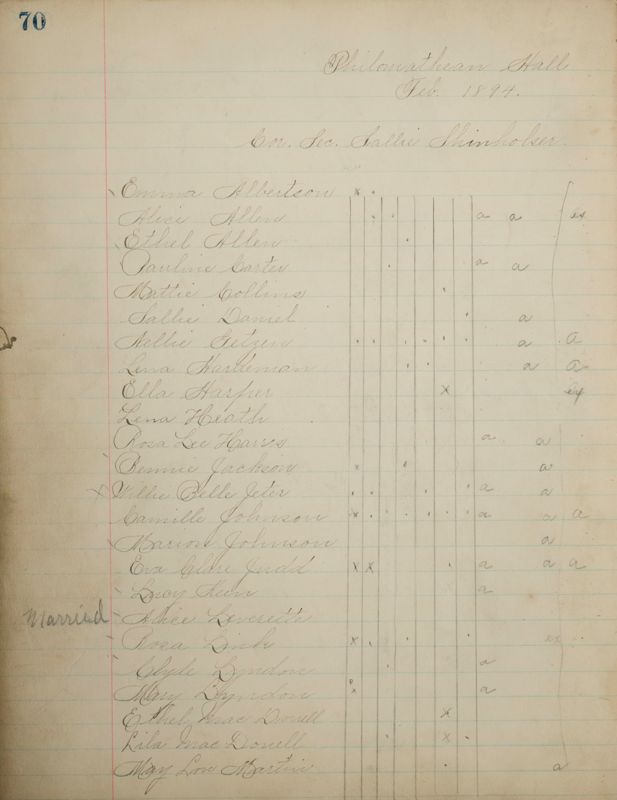 70
Philomathean Hall
Feb. 1894.
Cor. Sec. Sallie Shinholser.
Emma Albertson x .
Alice Allen . . a a ex
Ethel Allen .
Pauline Carter . a a
Mattie Collins .
Sallie Daniel . a
Nellie Getzen . . . . . . a a
Lena Hardeman . . a a
Ella Harper x ex
Lena Heath
Rosa Lee Harris a a
Bennie Jackson x . a
x Willie Belle Jeter . . . . a a
Camille Johnson x . . . . . . a a a
Marion Johnson a
Eva Clare Judd x x . a a a
Lucy Keen a
Married Alice Leverette
Rosa Link x . . . ex
Clyde Lyndon . a
May Lyndon x a
Ethel Mac Donell x
Lila Mac Donell . x .
May Lou Martin . a